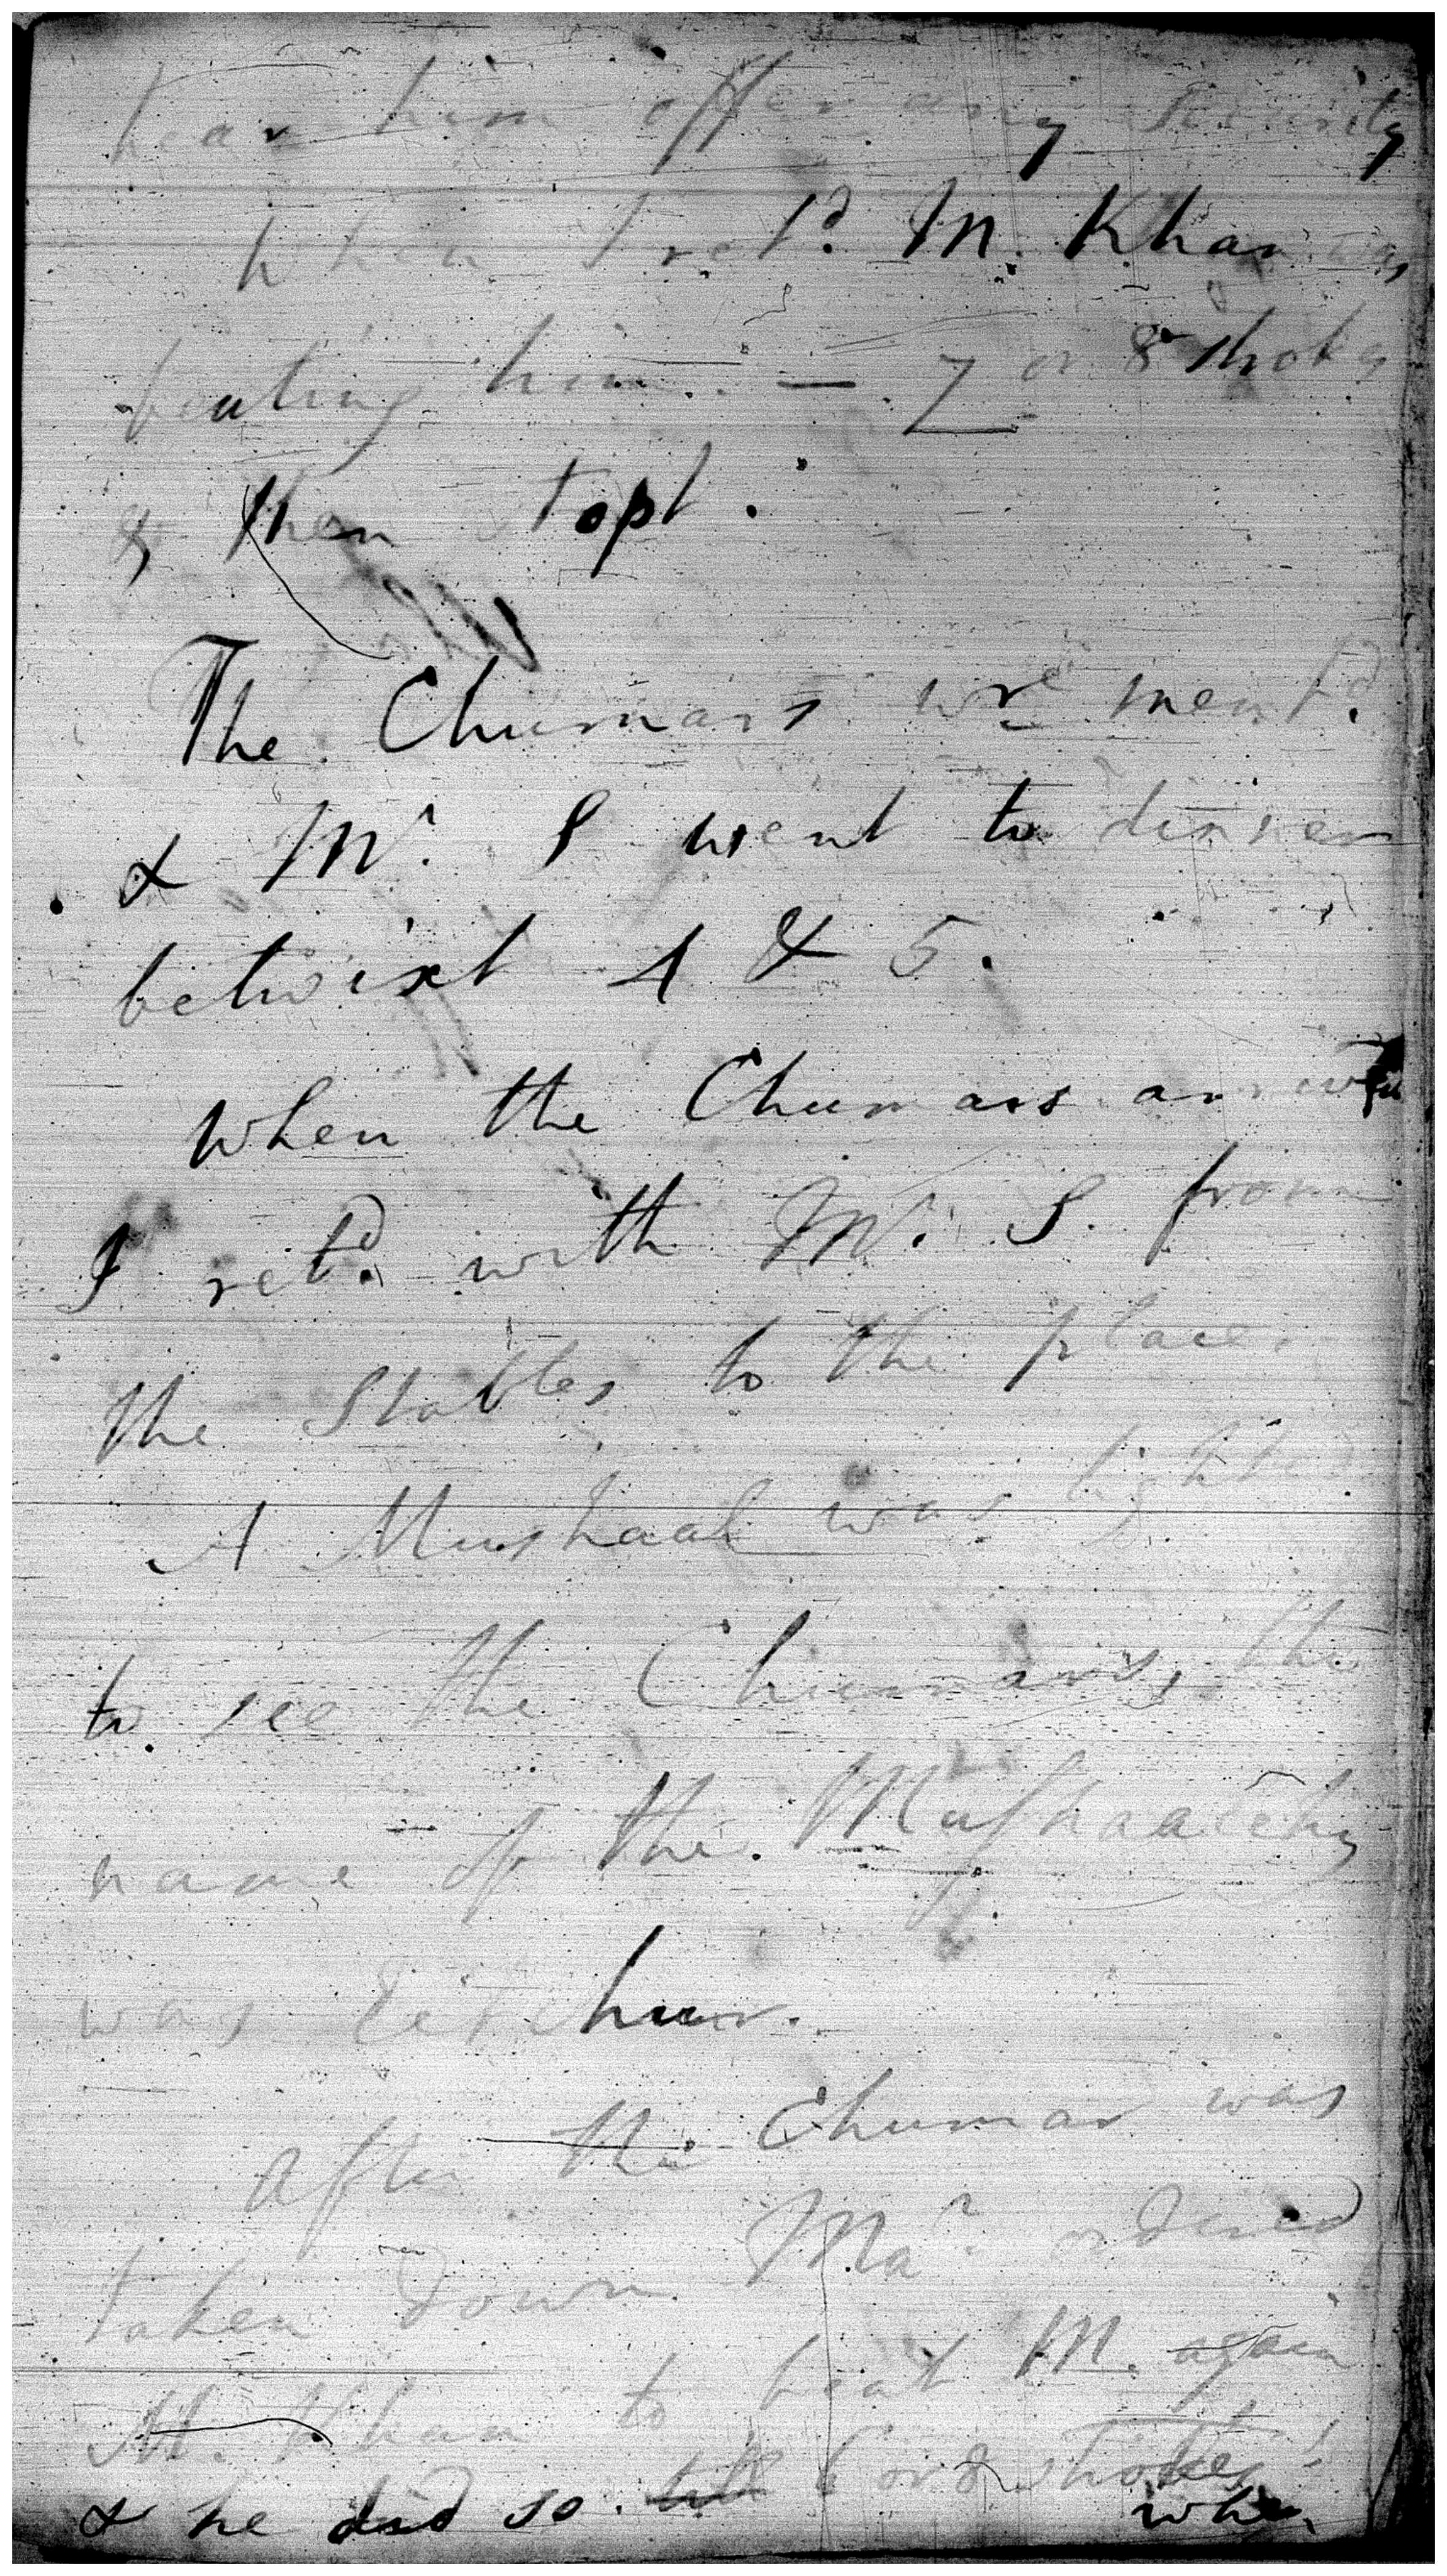 hear him offer any security
when I retd. M. Khan was
beating him. — 7 or 8 strokes
& then stopt.
The Chumars wre mentd.
& Mr. S went to dinner
betwixt 4 & 5.
When the Chumars arrived
I retd. with Mr. S. from
the Stables to the place.
A Mushaal was lighted
to see the Chumars, the
name of the Mushaalchy
was
After the Chumar was
taken down Mar. ordered
M. Khan to beat M. again
& he did so. 6 or 8 strokes
when